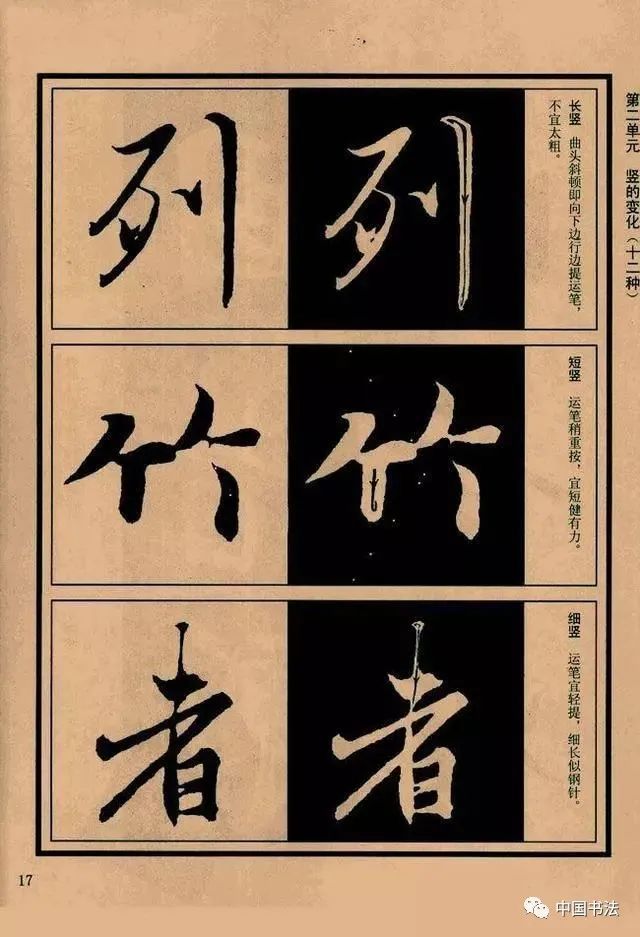 第二单元　竖的变化（十二种）
长竖　曲头斜顿即向下边行边提运笔，
不宜太粗。
列
列
短竖　运笔稍重按，宜短健有力。
竹
竹
细竖　运笔宜轻提，细长似钢针。
者
者
17
中国书法